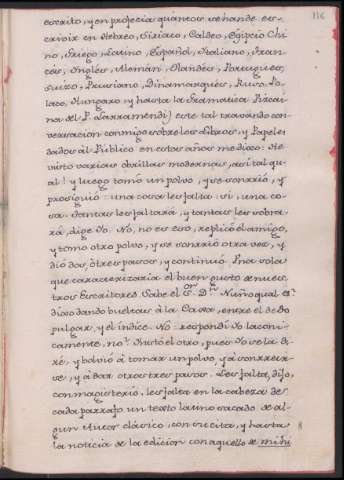 116
escrito, y en profecia quantos se han de es-
crivir en Hebreo, Siriaco, Caldeo, Egipcio Chi
no, Griego, Latino, Español, Italiano, Fran-
cés, Ingles, Aleman, Olandés, Portugues,
Suizo, Prusiano, Dinamarqués, Ruso, Po-
laco, Hungaro, y hasta la Gramatica Vizcai-
na del P. Larramendi) este tal travando con-
versacion conmigo sobre los Libros, y Papeles
dados al Público en estos años me dixo: He
visto varias obrillas modernas, así tal qual
qual! y luego tomó un polvo, y se sonrió, y
prosiguió: una cosa les falta: si, una co-
sa. Tantas les faltará, y tantas les sobra-
rá, dige Yo. No, no es eso, replicó el amigo,
y tomo otro polvo, y se sonrió otra vez, y
dió dos, ò tres pasos, y continuó. Una sola
que caracterizaria el buen gusto de nues-
tros Escritores. Sabe el Sor. Dn. Nuño qual es?
dixo dando bueltas à la Caxa, entre el dedo
pulgar, y el indice. No: respondí Yo laconi-
camente, no? Instó el otro, pues Yo se la di-
ré, y bolvió à tomar un polvo, y à sonreir-
se, y à dar otros tres pasos. Les falta, dijo,
con magisterio, les falta en la cabeza de
cada parrafo un texto latino sacado de al-
gun Autor clásico, con su cita, y hasta
la noticia de la edicion con aquello de mihi